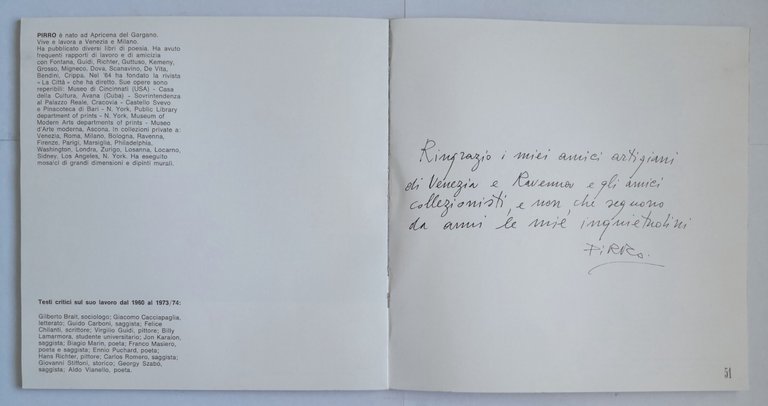 PIRRO è nato ad Apricena del Gargano.
Vive e lavora a Venezia e Milano.
Ha pubblicato diversi libri di poesia. Ha avuto
frequenti rapporti di lavoro e di amicizia
con Fontana, Guidi, Richter, Guttuso, Kemeny,
Grosso, Migneco, Dova, Scanavino, De Vita,
Bendini, Crippa. Nel '64 ha fondato la rivista
« La Città » che ha diretto. Sue opere sono
reperibili: Museo di Cincinnati (USA) - Casa
della Cultura, Avana (Cuba) - Sovrintendenza
al Palazzo Reale, Cracovia - Castello Svevo
e Pinacoteca di Bari - N. York, Public Library
department of prints - N. York, Museum of
Modern Arts departments of prints - Museo
d'Arte moderna, Ascona. In collezioni private a:
Venezia, Roma, Milano, Bologna, Ravenna,
Firenze, Parigi, Marsiglia, Philadelphia,
Washington, Londra, Zurigo, Losanna, Locarno,
Sidney, Los Angeles, N. York. Ha eseguito
mosaici di grandi dimensioni e dipinti murali.
Testi critici sul suo lavoro dal 1960 al 1973/74:
Gilberto Brait, sociologo; Giacomo Cacciapaglia,
letterato; Guido Carboni, saggista; Felice
Chilanti, scrittore; Virgilio Guidi, pittore; Billy
Lamarmora, studente universitario; Jon Karaion,
saggista; Biagio Marin, poeta; Franco Masiero,
poeta e saggista; Ennio Puchard, poeta;
Hans Richter, pittore; Carlos Romero, saggista;
Giovanni Stiffoni, storico; Georgy Szabó,
saggista; Aldo Vianello, poeta.
Ringrazio i miei amici artigiani
di Venezia e Ravenna e gli amici
collezionisti, e non, che seguono
da anni le mie inquietudini
PIRRO.
51